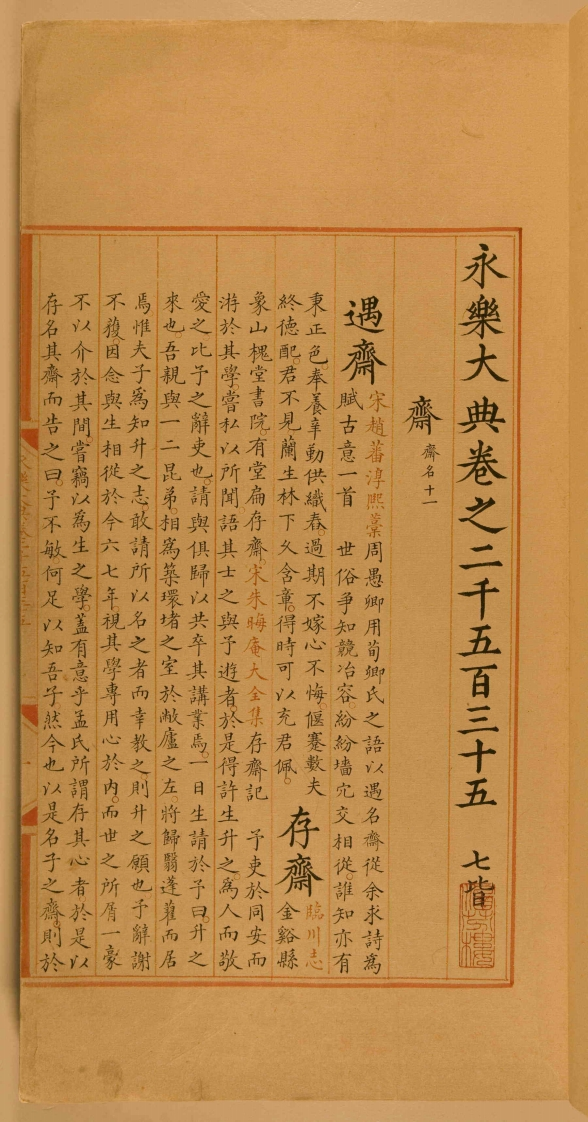 永樂大典卷之二千五百三十五 七皆
齋 齋名十一
遇齋 宋趙蕃淳熙藁 周愚卿用荀卿氏之語以遇名齋從余求詩為
賦古意一首 世俗爭知競冶容。紛紛墻宂交相從。誰知亦有
秉正色。奉養辛勤供織舂。過期不嫁心不悔。偃蹇數夫
終德配。君不見蘭生林下乆含章。得時可以充君佩。
存齋 臨川志
金谿縣
象山槐堂書院有堂扁存齋。宋朱晦庵大全集存齋記 予吏於同安而
游於其學。嘗私以所聞語其士之與予遊者。於是得許生升之為人而敬
愛之比予之辭吏也。請與俱歸以共卒其講業焉。一日生請於予曰。升之
來也。吾親與一二昆弟。相為築環堵之室於敝廬之左。將歸翳蓬藋而居
焉惟夫子為知升之志。敢請所以名之者而幸教之則升之願也予辭謝
不獲。因念與生相從於今六七年。視其學專用心於内。而世之所屑一豪
不以介於其間。嘗竊以為生之學。蓋有意乎孟氏所謂存其心者於是以
存名其齋而告之曰。予不敏何足以知吾子。然今也以是名子之齋。則於